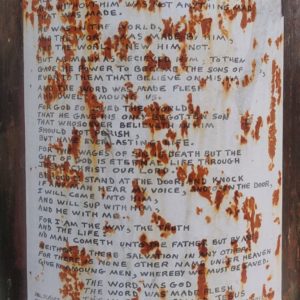 WITHOUT HIM WAS NOT ANYTHING MADE
WAS MADE.
HE WAS IN THE WORLD,
WORLD WAS MADE BY HIM,
THE WORLD KNEW HIM NOT.
BUT AS MANY AS RECEIVED HIM, TO THEM
GAVE HE POWER TO BECOME THE SONS OF
TO THEM THAT BELIEVE ON HIS
AND THE WORD WAS MADE FLESH
AND DWELT AMONG
FOR GOD SO LOVED THE WORLD
THAT HE GAVE HIS ONLY BEGOTTEN SON
THAT WHOSOEVER BELIEVETH IN HIM
SHOULD PERISH,
BUT HAVE EVERLASTING LIFE.
FOR THE WAGES OF SIN IS DEATH BUT THE
GIFT OF GOD IS ETERNAL LIFE THROUGH
CHRIST OUR LORD
BEHOLD I STAND AT THE DOOR, AND KNOCK
IF ANY MAN HEAR MY VOICE, AND OPEN THE DOOR,
I WILL COME INTO HIM,
AND WILL SUP WITH HIM,
AND HE WITH ME
I AM THE WAY, THE TRUTH
AND THE LIFE
NO MAN COMETH UNTO THE FATHER BUT BY ME
NEITHER IS THERE SALVATION IN ANY OTHER
FOR THERE IS NONE OTHER NAME UNDER HEAVEN
GIVEN AMONG MEN, WHEREBY WE MUST BE SAVED.
THE WORD WAS GOD
THE WORD WAS MADE FLESH